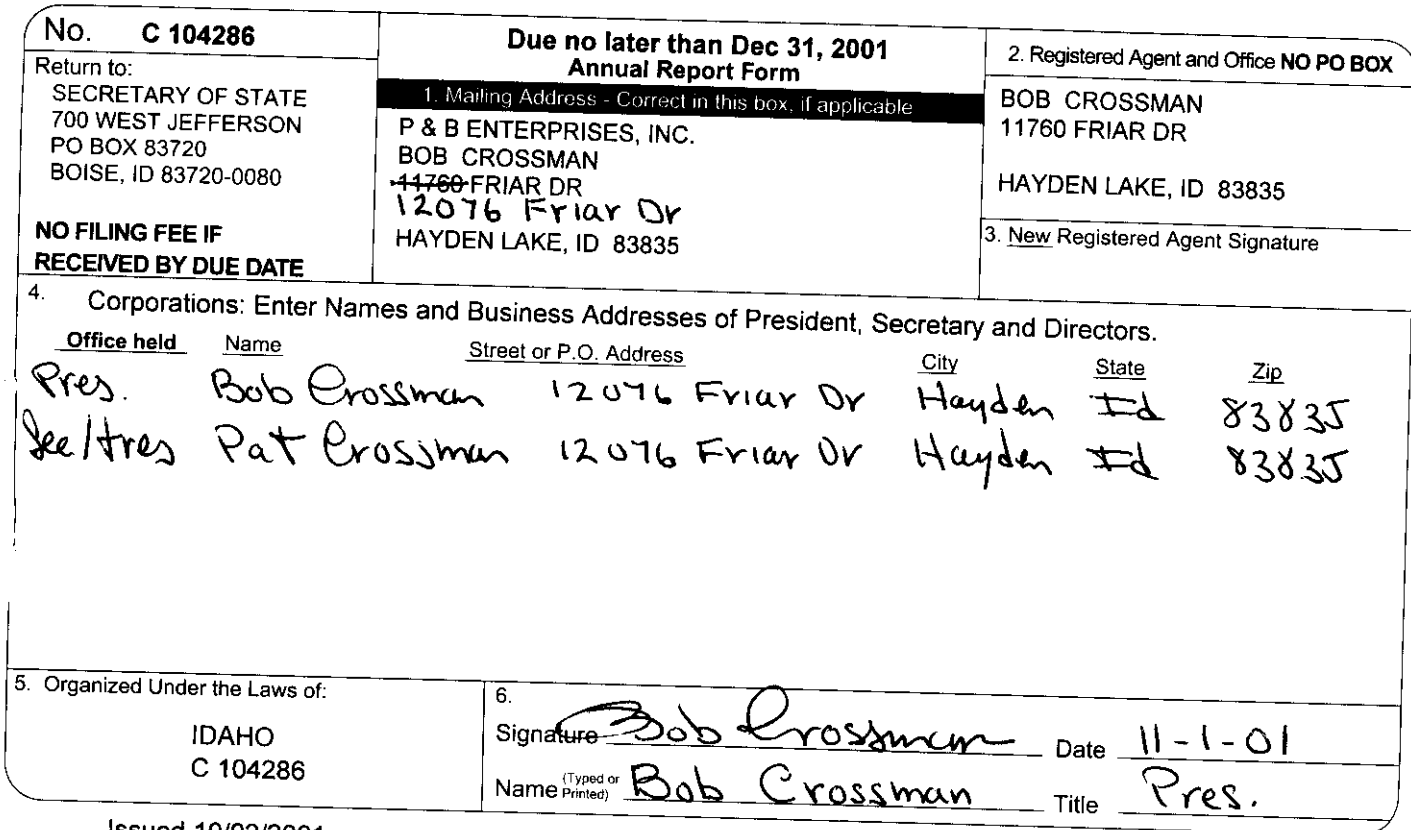 No. C 104286
Return to:
SECRETARY OF STATE
700 WEST JEFFERSON
PO BOX 83720
BOISE, ID 83720-0080
NO FILING FEE IF
RECEIVED BY DUE DATE
Due no later than Dec 31, 2001
Annual Report Form
1. Mailing Address - Correct in this box, if applicable
P & B ENTERPRISES, INC.
BOB CROSSMAN
11760 FRIAR DR
12076 Friar Dr
HAYDEN LAKE, ID 83835
2. Registered Agent and Office NO PO BOX
BOB CROSSMAN
11760 FRIAR DR
HAYDEN LAKE, ID 83835
3. New Registered Agent Signature
4. Corporations: Enter Names and Business Addresses of President, Secretary and Directors.
Office held Name Street or P.O. Address City State Zip
Pres. Bob Crossman 12076 Friar Dr Hayden Id 83835
Sec/tres Pat Crossman 12076 Friar Dr Hayden Id 83835
5. Organized Under the Laws of:
IDAHO
C 104286
6.
Signature Bob Crossman Date 11-1-01
Name (Typed or Printed) Bob Crossman Title Pres.